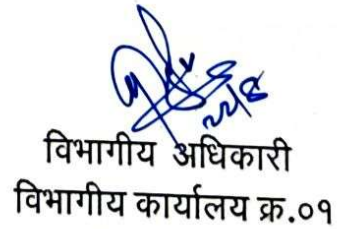 २२/८
विभागीय अधिकारी
विभागीय कार्यालय क्र.०१